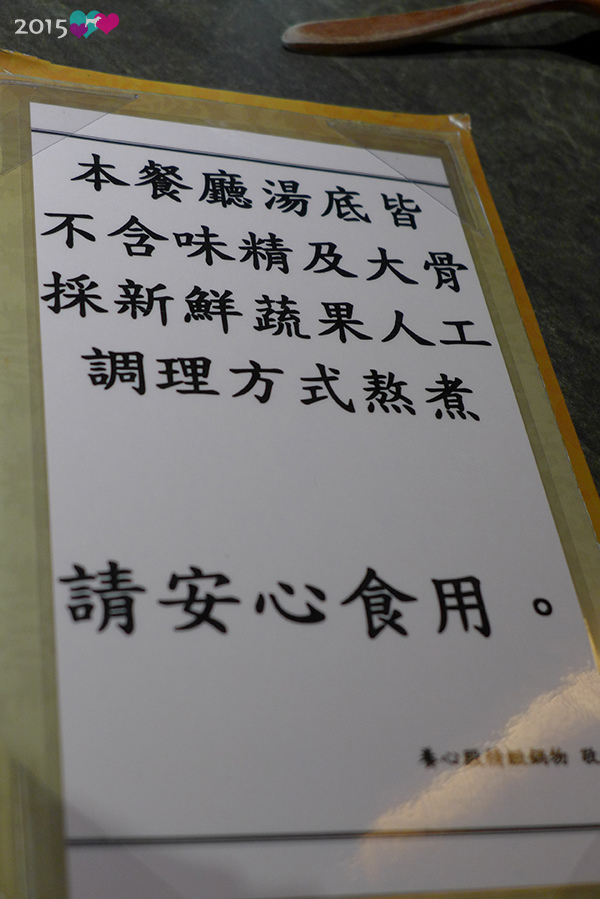 2015
本餐廳湯底皆
不含味精及大骨
採新鮮蔬果人工
調理方式熬煮
請安心食用。
養心殿精緻鍋物 敬